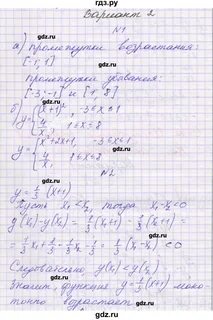 Вариант 2
№1
а) промежутки возрастания:
[-1; 1]
промежутки убывания:
[-3; -1] и [1; 8]
б) y = { (x+1)², -3≤x≤1
4/x, 1≤x≤8
y = { x²+2x+1, -3≤x≤1
4/x, 1≤x≤8
№2
y = 1/3 (x+1)
Пусть x₁ < x₂, тогда x₁-x₂<0
y(x₁)-y(x₂) = 1/3 (x₁+1) - 1/3 (x₂+1) =
= 1/3 x₁ + 1/3 - 1/3 x₂ - 1/3 = 1/3 (x₁-x₂) <0
Следовательно y(x₁) < y(x₂)
Значит, функция y = 1/3 (x+1) моно
тонно возрастает
gdz.ru